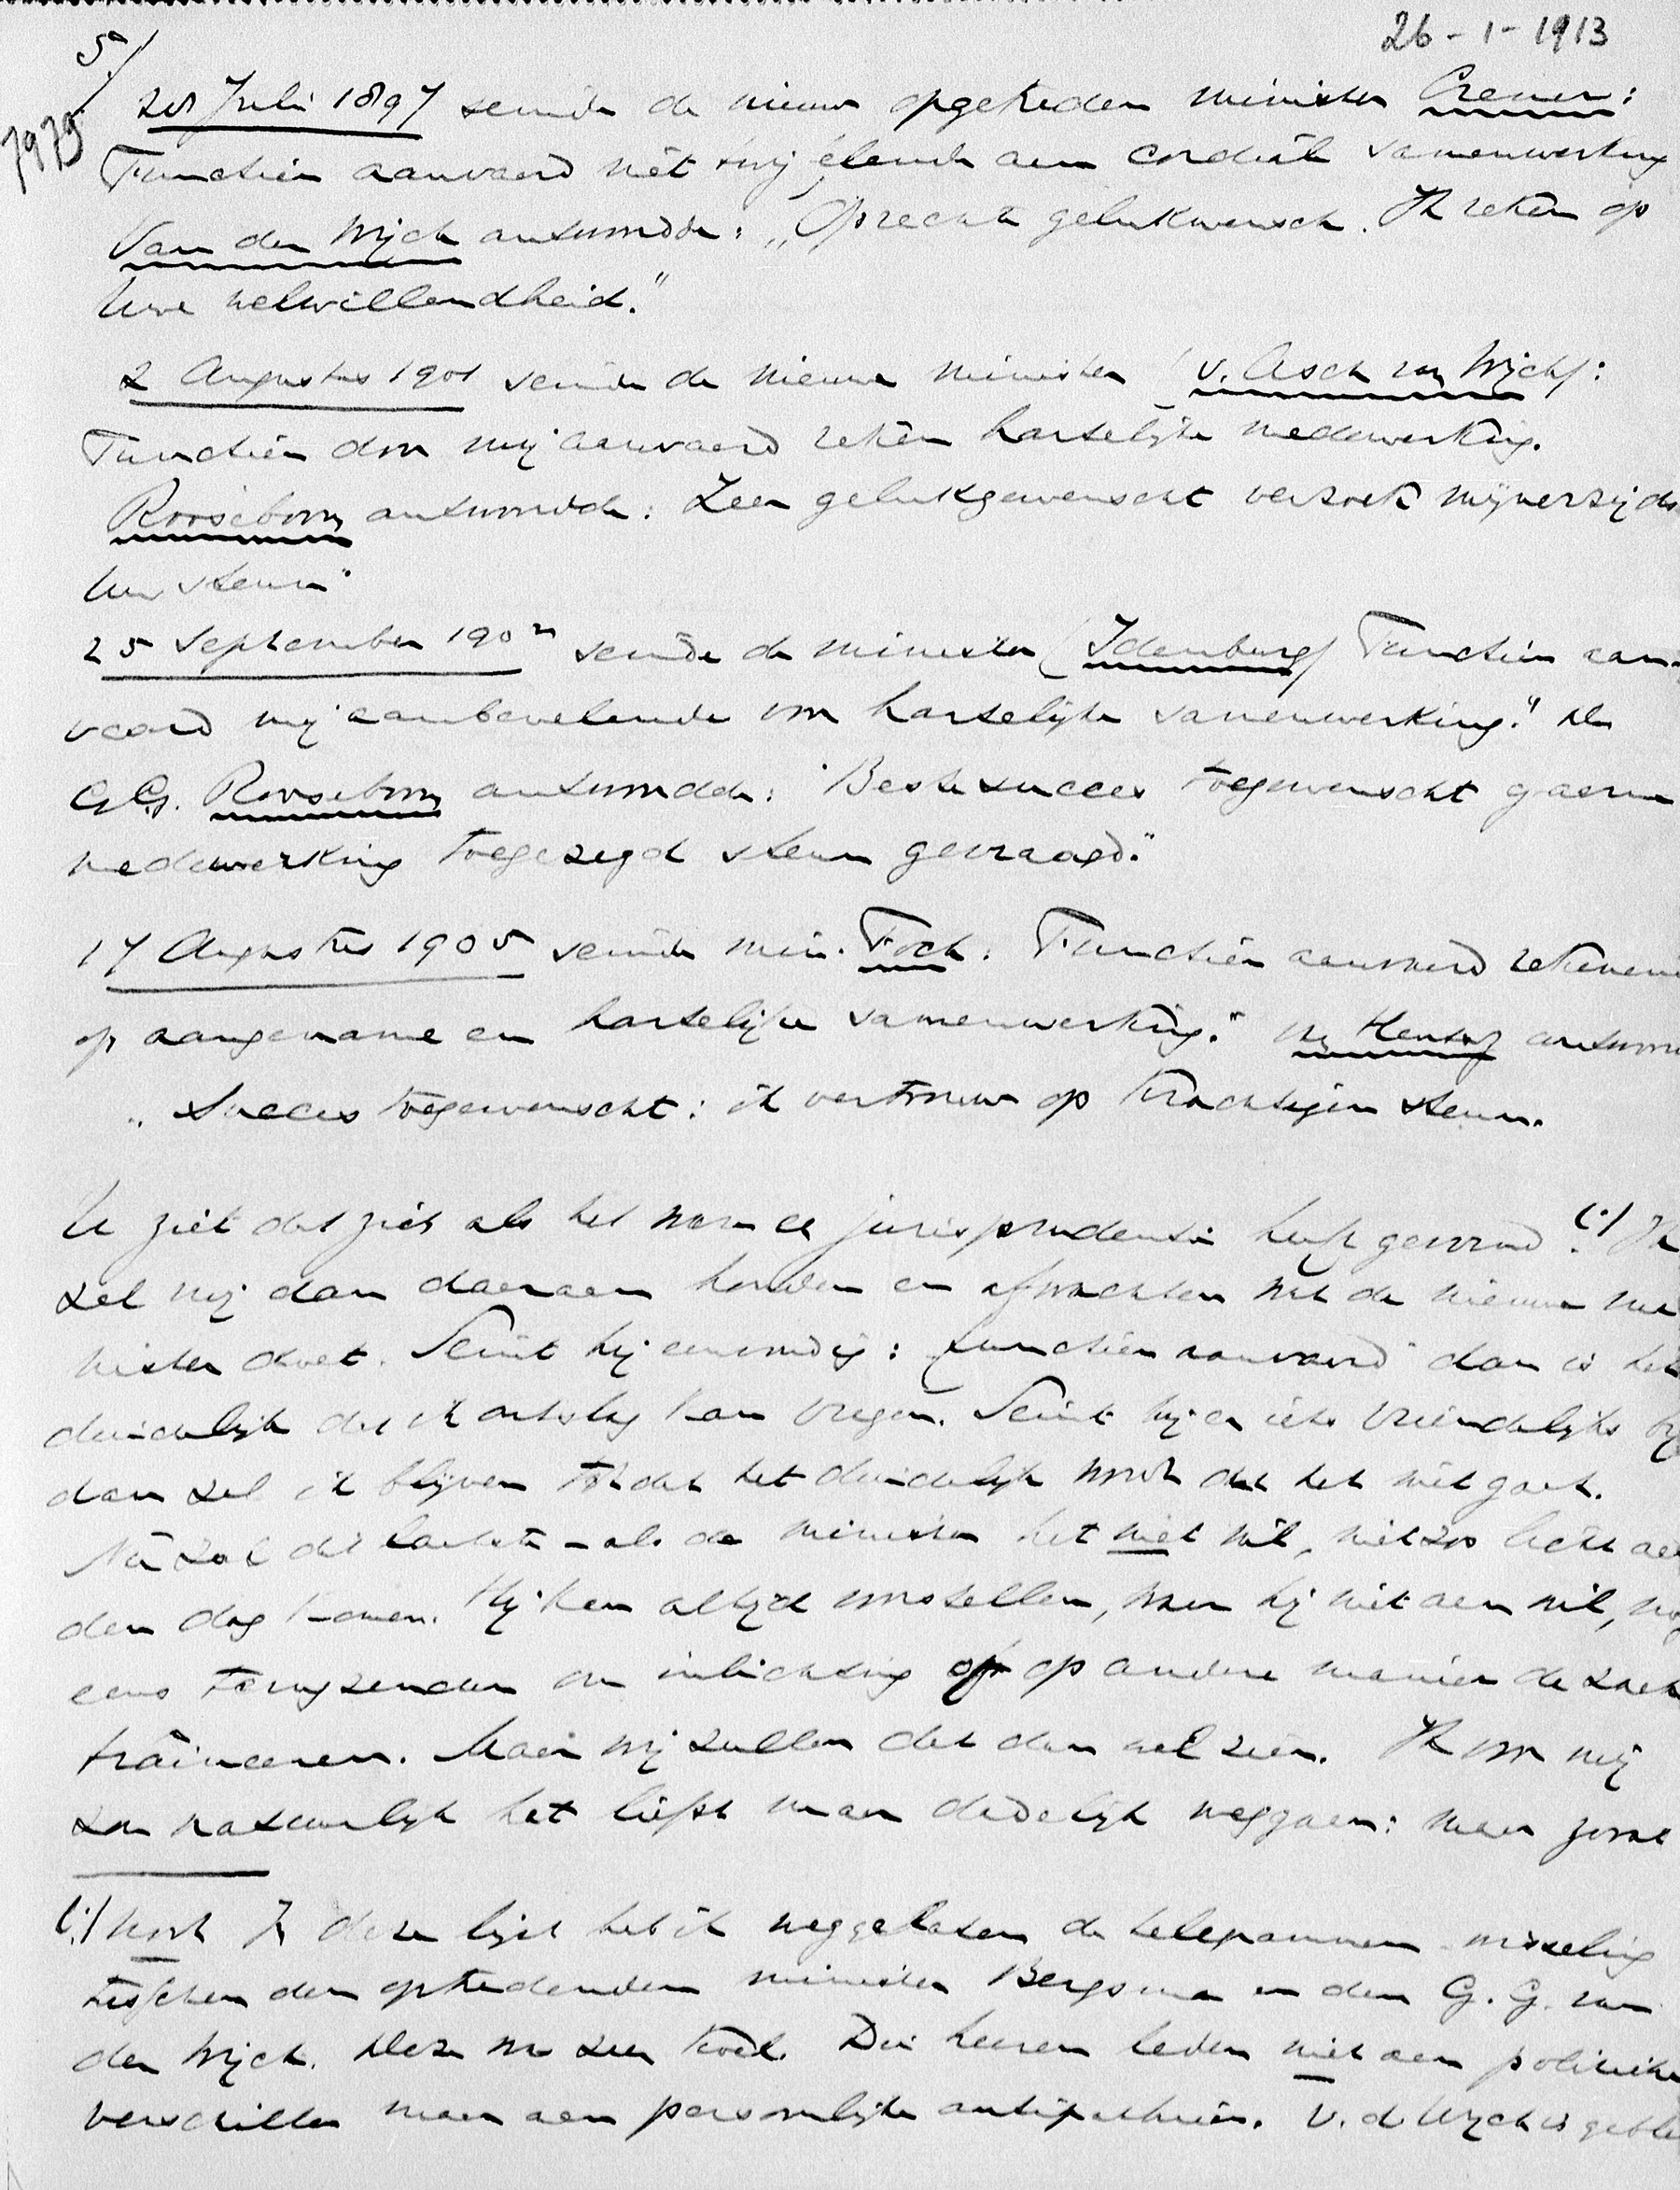 26-1-1913
5/
7979
28 Juli 1897 seinde de nieuw opgetreden minister Cremer:
Functiën aanvaard mêt mij êlende aan cordiale samenwerking
Van der Wijck antwoordde: "Oprechte gelukwensch. Ik reken op
Uwe welwillendheid."
2 Augustus 1901 seinde de nieuwe minister (v. Asch van Wijck):
Functiën door mij aanvaard reken hartelijke medewerking.
Rooseboom antwoordde: Zeer gelukgewenscht verzoek mijnerzijds
Uw steun"
25 September 1902 seinde de minister (Idenburg) Functiën aan-
vaard mij aanbevelende voor hartelijke samenwerking." De
G.G. Rooseboom antwoordde: "Beste succes toegewenscht gaarne
medewerking toegezegd steun gevraagd."
17 Augustus 1905 seinde min. Fock: Functiën aanvaard rekenend
op aangename en hartelijke samenwerking." v. Heutsz antwoo
"Succes toegewenscht: ik vertrouw op krachtigen steun.
U ziet dat zich als het ware een jurisprudentie heeft gevormd (:/ Ik
zal mij dan daaraan houden en afwachten wat de nieuwe mi
nister doet. Seint hij eenvoudig: functiën aanvaard" dan is het
duidelijk dat ik ontslag kan vragen. Seint hij er iets vriendelijks bij
dan zal ik blijven totdat het duidelijk wordt dat het niet gaat.
Nu zal dit laatste – als de minister het niet wil, niet zoo licht aan
den dag komen. Hij kan altijd voorstellen, waar hij niet aan wil, nog
eens terugzenden om inlichting of op andere manier de zaak
traineeren. Maar wij zullen dat dan wel zien. Ik voor mij
zou natuurlijk het liefst maar dadelijk weggaan: maar zooals
(:/ Noot In deze lijst heb ik weggelaten de telegrammen wisseling
tusschen den optredenden minister Bergsma en den G.G. van
der Wijck. Deze was zeer koel. Die heeren leden niet aan politieke
verschillen maar aan persoonlijke antipathieën. V. d. Wijck is geble